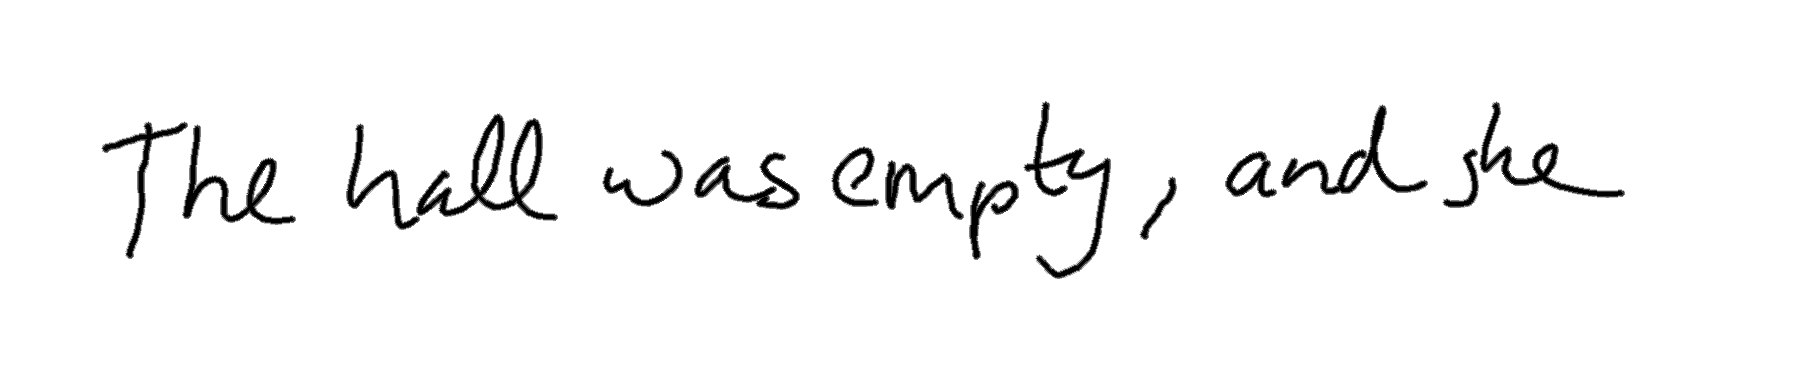 The hall was empty, and she